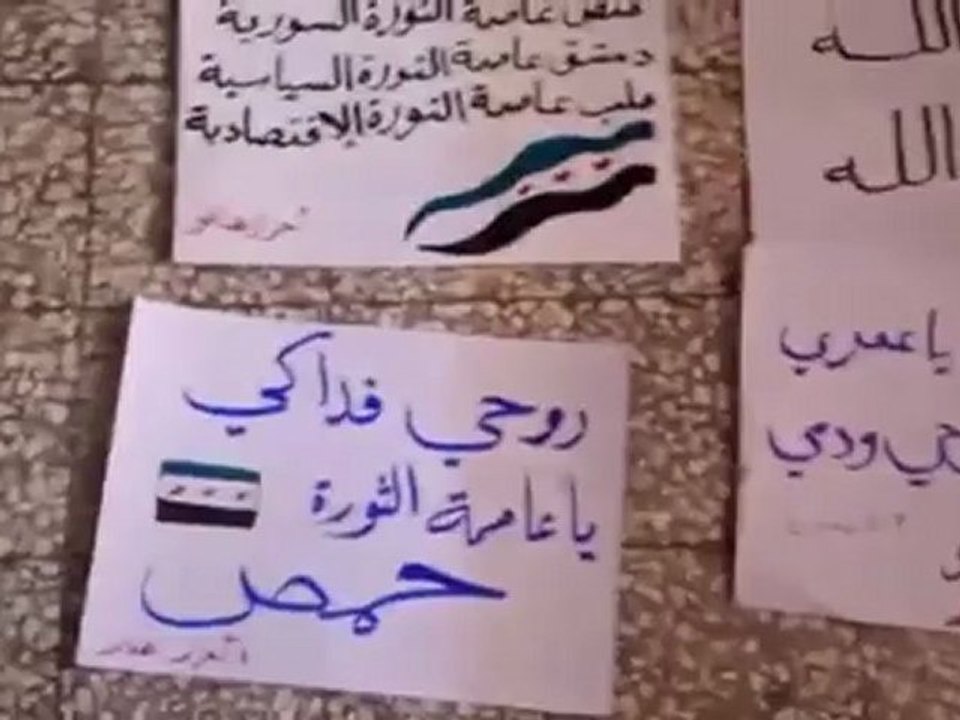 حمص عاصمة الثورة السورية
دمشق عاصمة الثورة السياسية
حلب عاصمة الثورة الاقتصادية
الله
الله
روحي فداكي
يا عاصمة الثورة
حمص
يا عمري
ودمي